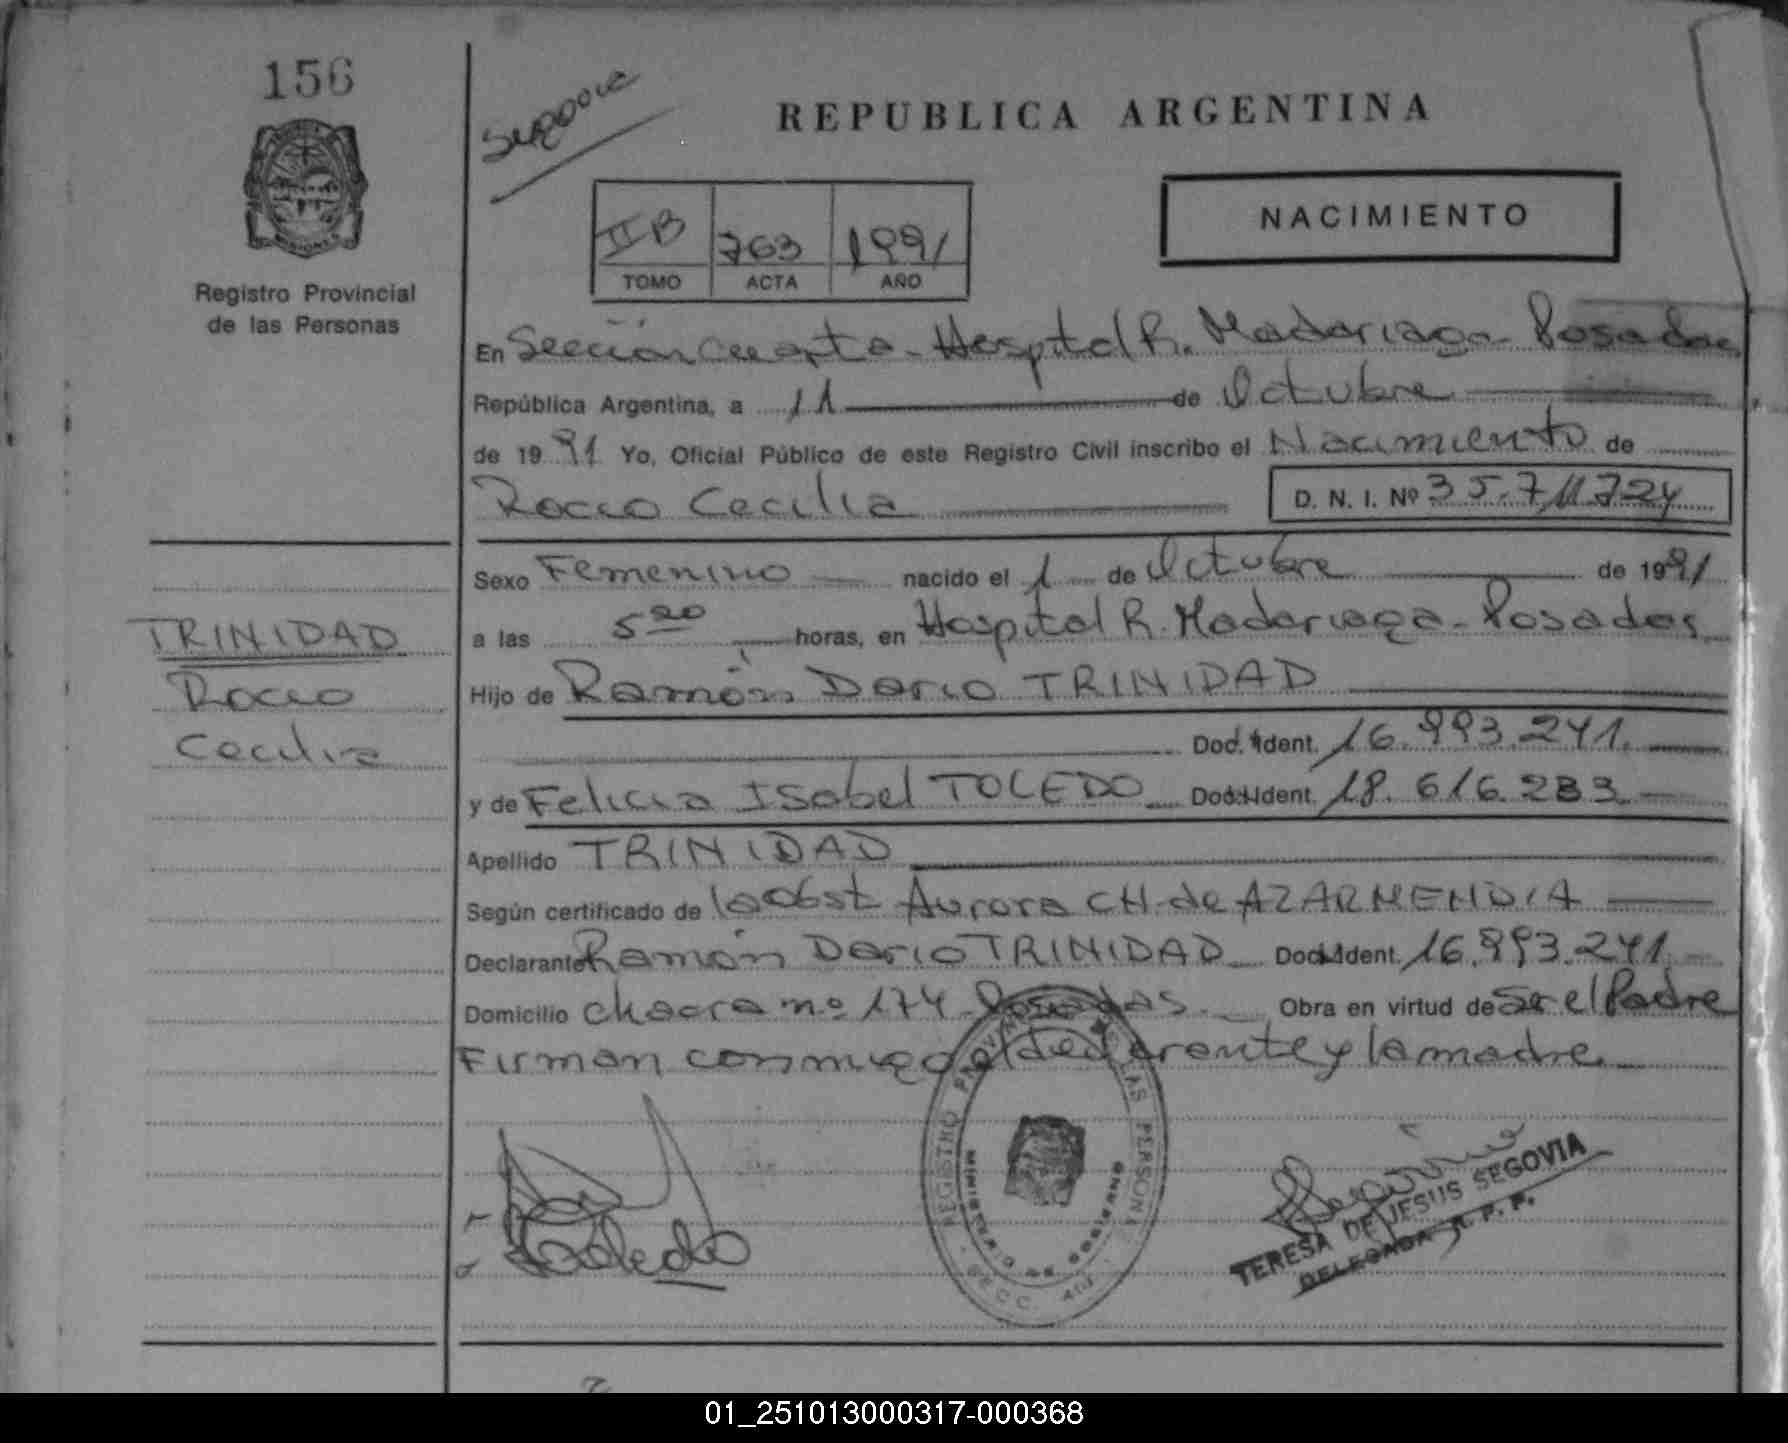 156
REPUBLICA ARGENTINA
NACIMIENTO
II B 763 1991
TOMO ACTA AÑO
Registro Provincial
de las Personas
En Sección Cuarta - Hospital R. Madariaga - Posadas
República Argentina, a 11 de Octubre
de 1991 Yo, Oficial Público de este Registro Civil inscribo el Nacimiento de
Rocio Cecilia D. N. I. Nº 35.711.724
Sexo Femenino nacido el 1 de Octubre de 1991
TRINIDAD
Rocio
Cecilia
a las 5 20 horas, en Hospital R. Madariaga - Posadas
Hijo de Ramón Dario TRINIDAD
Doc. Ident. 16.993.241.
y de Felicia Isabel TOLEDO Doc. Ident. 18.616.283
Apellido TRINIDAD
Según certificado de la Obst Aurora CH. de AZARMENDIA
Declarante Ramón Dario TRINIDAD Doc. Ident. 16.993.241
Domicilio Chacra nº 174 - Posadas. Obra en virtud de Ser el Padre
Firman conmigo el declarante y la madre.
Toledo
REGISTRO PROVINCIAL DE LAS PERSONAS
MINISTERIO DE GOBIERNO
SECC. 4ta
Segovia
TERESA DE JESUS SEGOVIA
DELEGADA R. P. P.
01_251013000317-000368